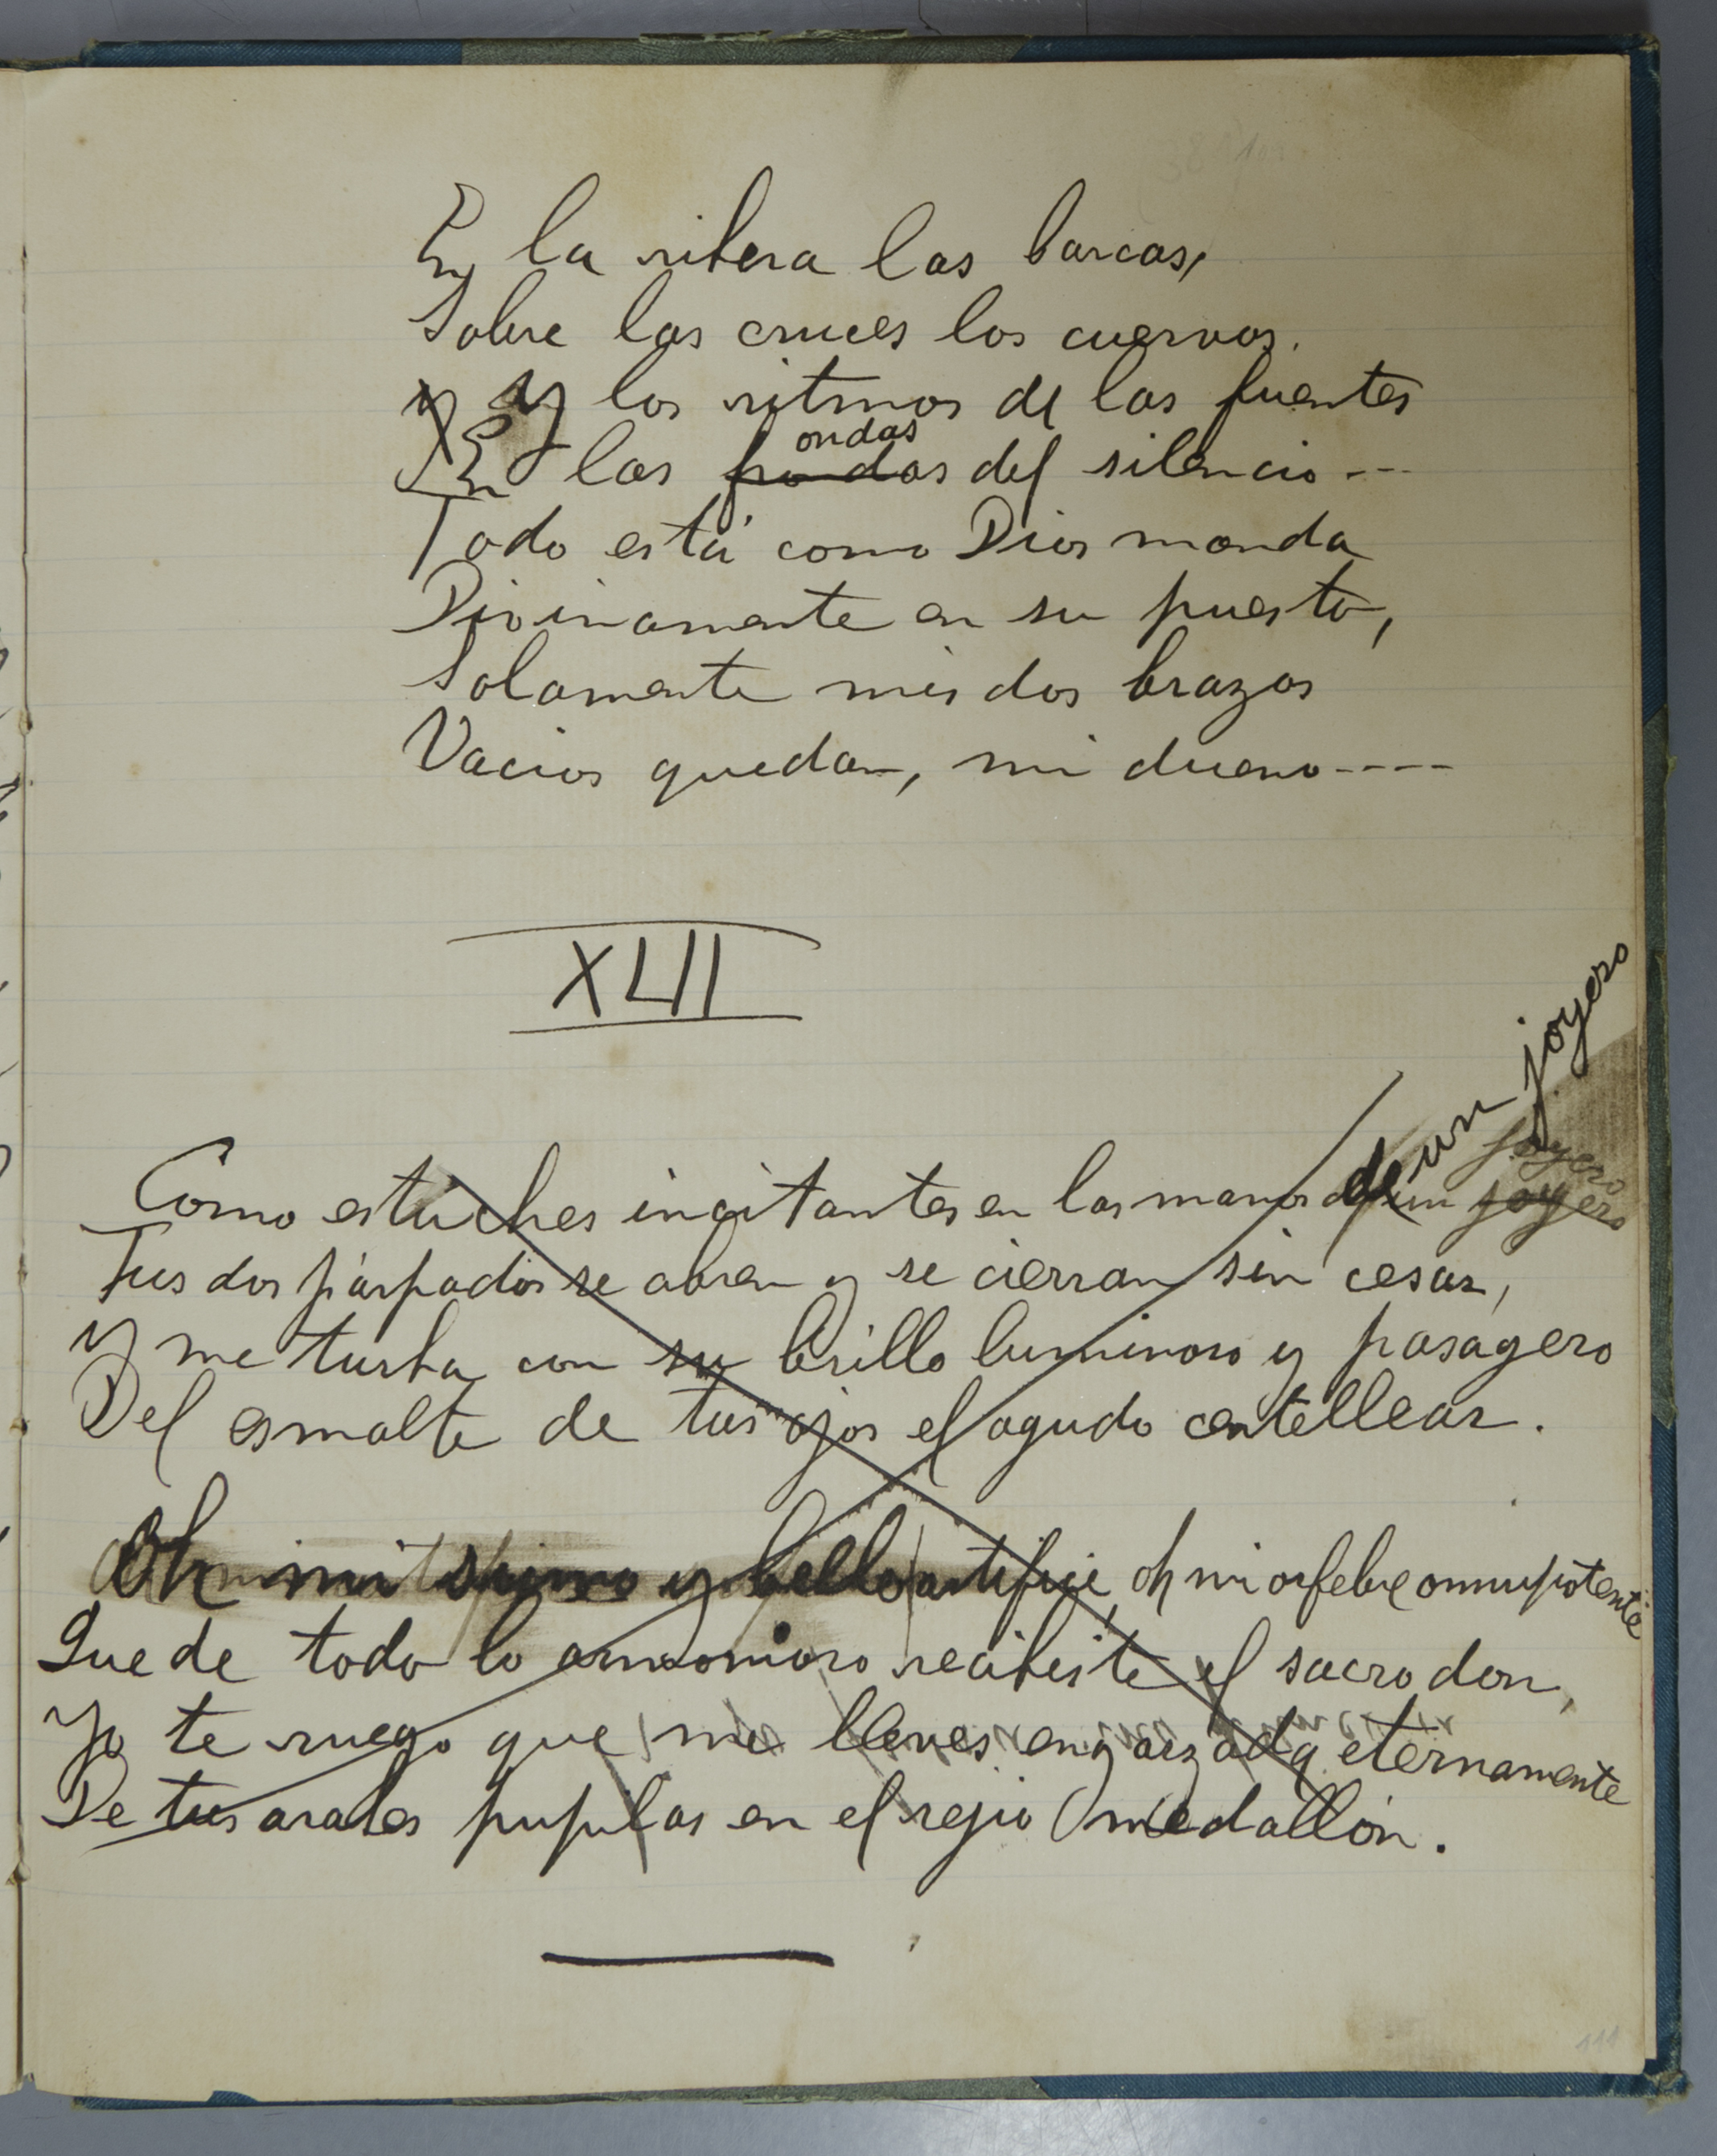 En la ribera las barcas,
Sobre las cruces los cuervos.
y y los ritmos de las fuentes
ondas
En las frondas del silencio ---
Todo está como Dios manda
Divinamente en su puesto,
Solamente mis dos brazos
Vacios quedan, mi dueno----
XLII
de un joyero
joyero
Como estuches incitantes en las manos de un joyero
Tus dos párpados se abren y se cierran sin cesar,
y me turba con su brillo luminoso y pasagero
Del esmalte de tus ojos el agudo centellear.
Oh mi y bello artifice oh mi orfebre omnipotente
Que de todo lo armonioso recibiste el sacro don,
Yo te ruego que me lleves engarzada eternamente
De tus arabes pupilas en el regio medallón.
111